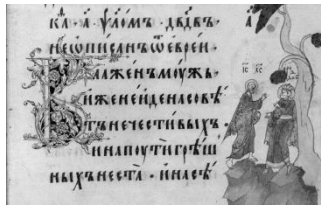 КА҃ · А҃ · Ѱ҃ЛОМЪ · ДВ҃ДВЪ ·
НЕѠПИСАНЪ Ѿ ЕВРЕИ ·
БЛАЖЕНЪ МОУЖЬ ·
ИЖЕ НЕ ИДЕ НА СОВѢ
ТЪ НЕЧЕСТИВЫХЪ ·
И НА ПОУТИ ГРѢШ
НЫХЪ НЕ СТА · И НА СѢ
ІС ХС